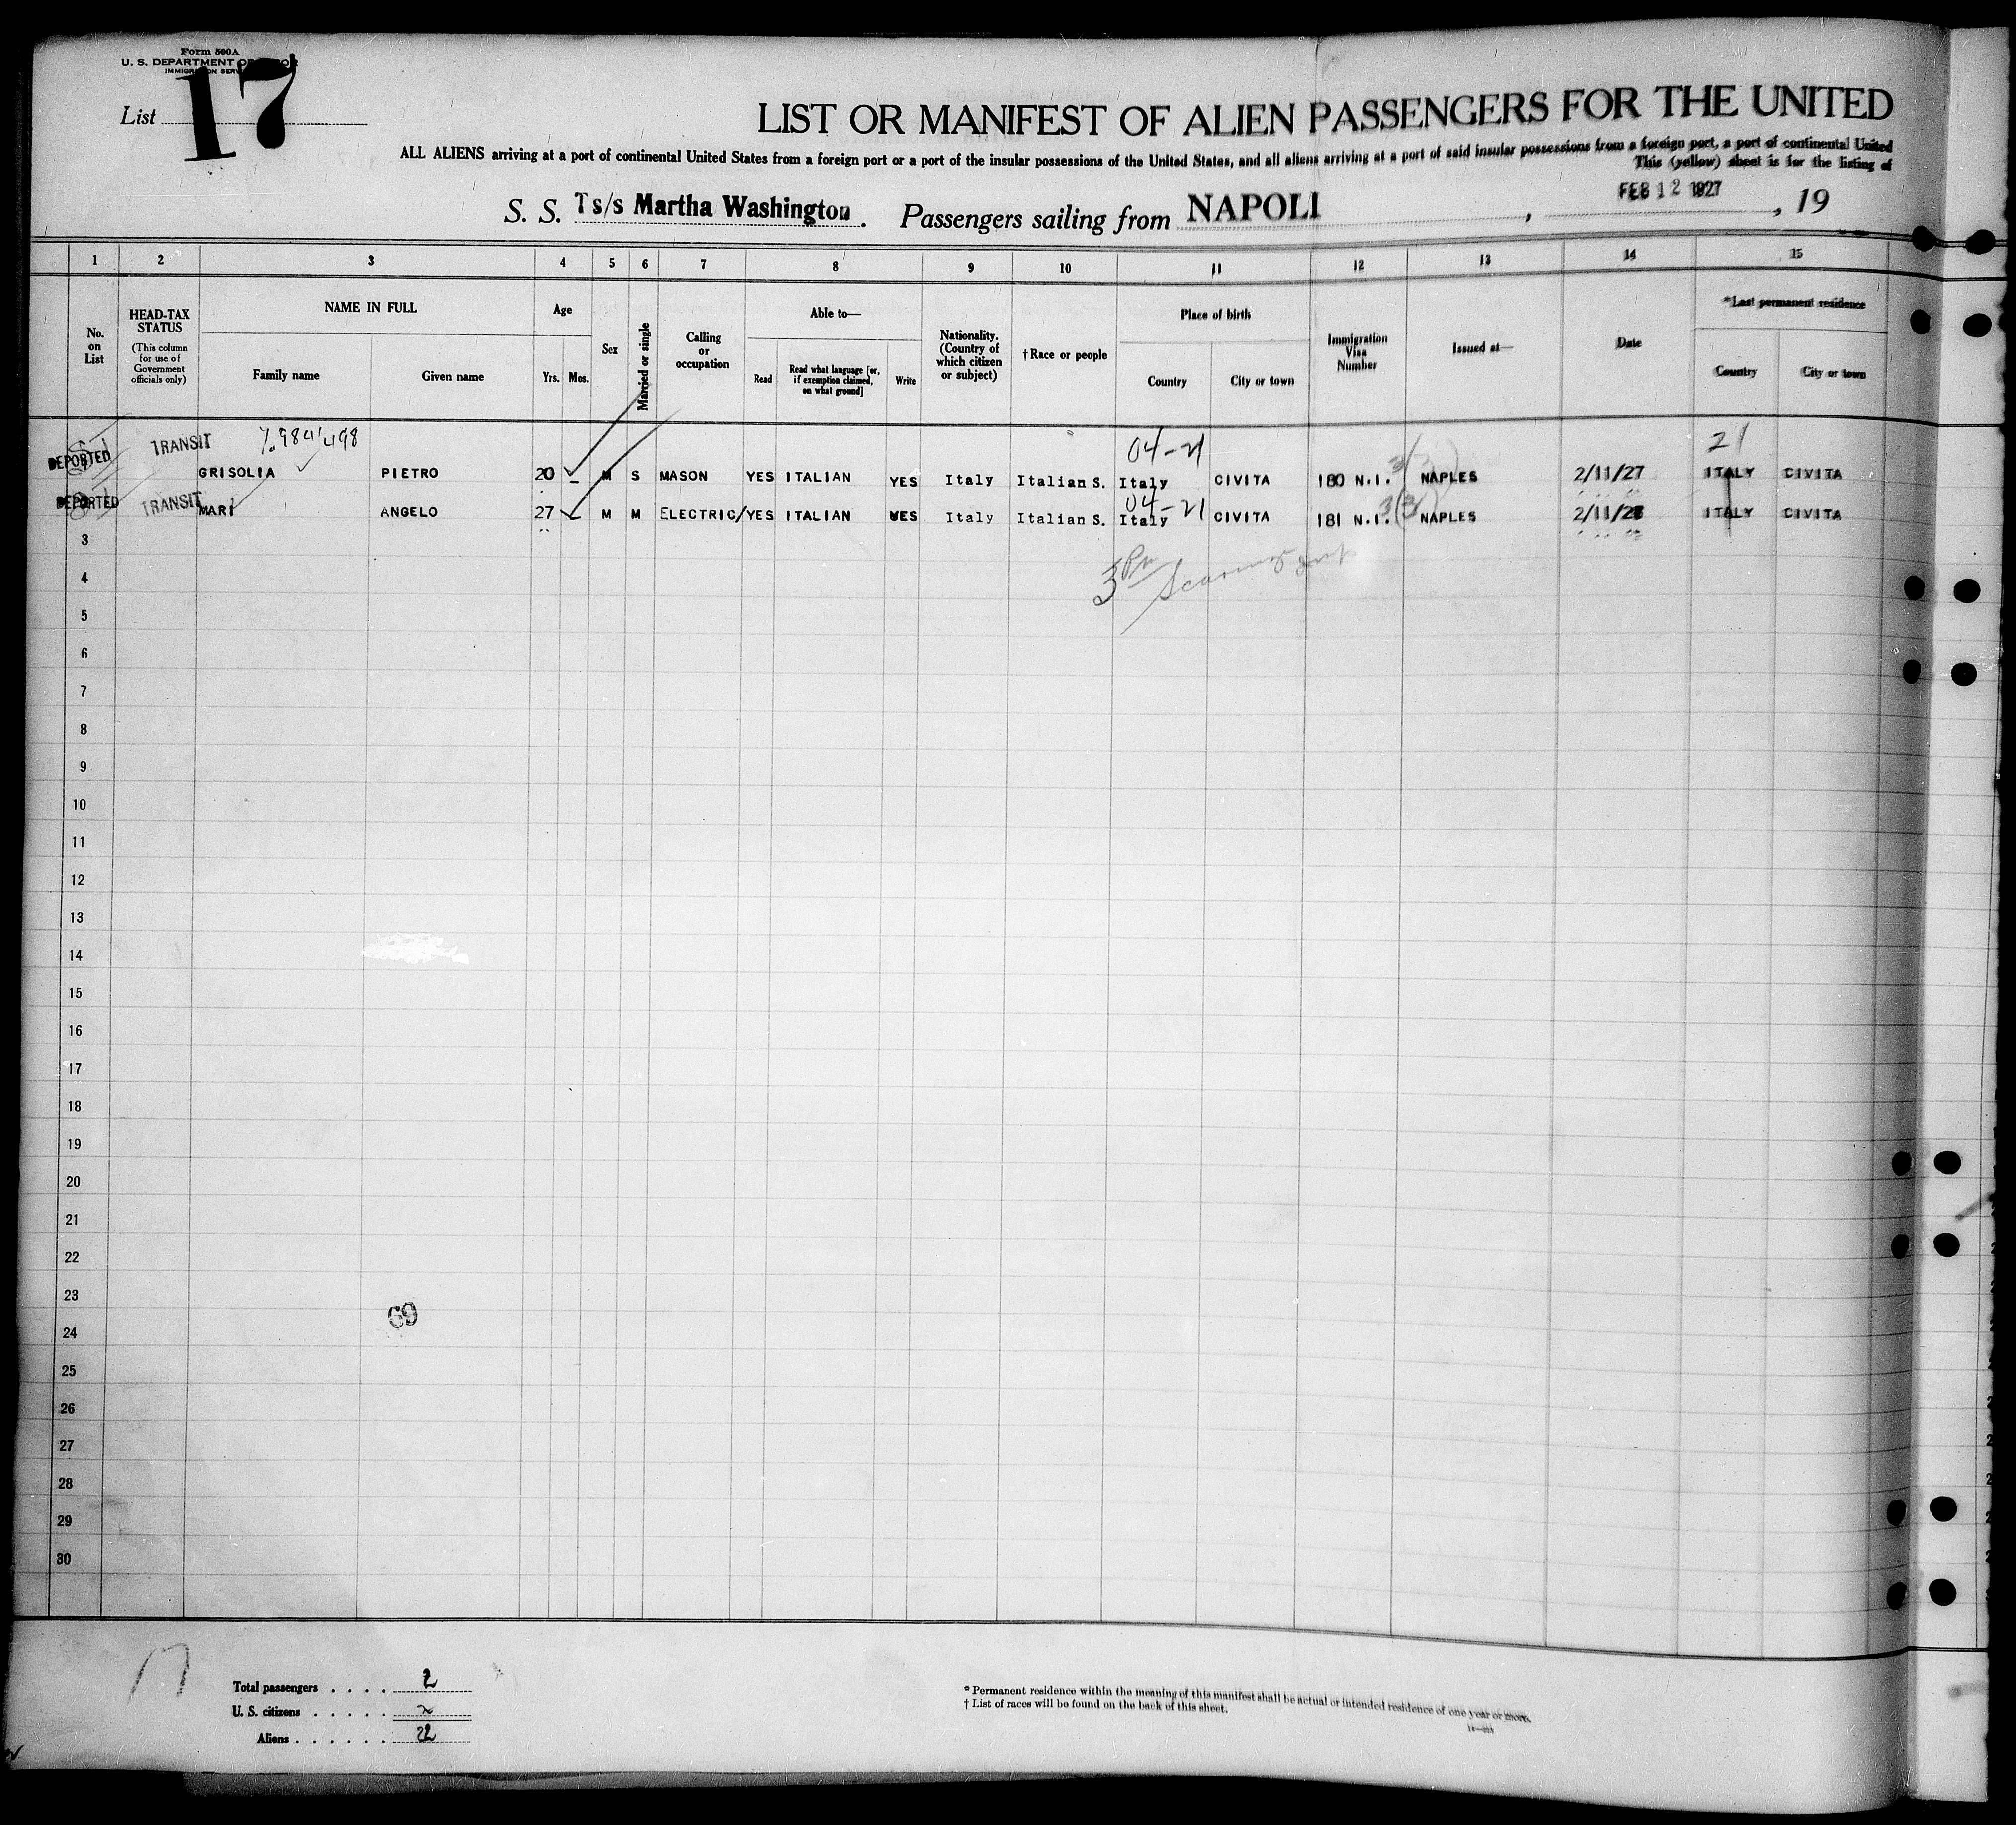 Form 500A
U. S. DEPARTMENT OF LABOR
IMMIGRATION SERVICE
List 17
LIST OR MANIFEST OF ALIEN PASSENGERS FOR THE UNITED
ALL ALIENS arriving at a port of continental United States from a foreign port or a port of the insular possessions of the United States, and all aliens arriving at a port of said insular possessions from a foreign port, a port of continental United
This (yellow) sheet is for the listing of
S. S. Ts/s Martha Washington. Passengers sailing from NAPOLI, FEB 12 1927, 19
1 2 3 4 5 6 7 8 9 10 11 12 13 14 15
No. on List
HEAD-TAX STATUS
(This column for use of Government officials only)
NAME IN FULL
Family name
Given name
Age
Yrs. Mos.
Sex
Married or single
Calling or occupation
Able to—
Read
Read what language [or, if exemption claimed, on what ground]
Write
Nationality. (Country of which citizen or subject)
†Race or people
Place of birth
Country
City or town
Immigration Visa Number
Issued at—
Date
*Last permanent residence
Country
City or town
TRANSIT 04-21 21
DEPORTED GRISOLIA PIETRO 20 – M S MASON YES ITALIAN YES Italy Italian S. Italy CIVITA 180 N.I. NAPLES 2/11/27 ITALY CIVITA
04-21
DEPORTED TRANSIT MARI ANGELO 27 – M M ELECTRIC/ YES ITALIAN YES Italy Italian S. Italy CIVITA 181 N.I. NAPLES 2/11/28 ITALY CIVITA
3
4
5
6
7
8
9
10
11
12
13
14
15
16
17
18
19
20
21
22
23
69
24
25
26
27
28
29
30
17
Total passengers . . . . 2
U. S. citizens . . . . .
Aliens . . . . . . 2
* Permanent residence within the meaning of this manifest shall be actual or intended residence of one year or more.
† List of races will be found on the back of this sheet.